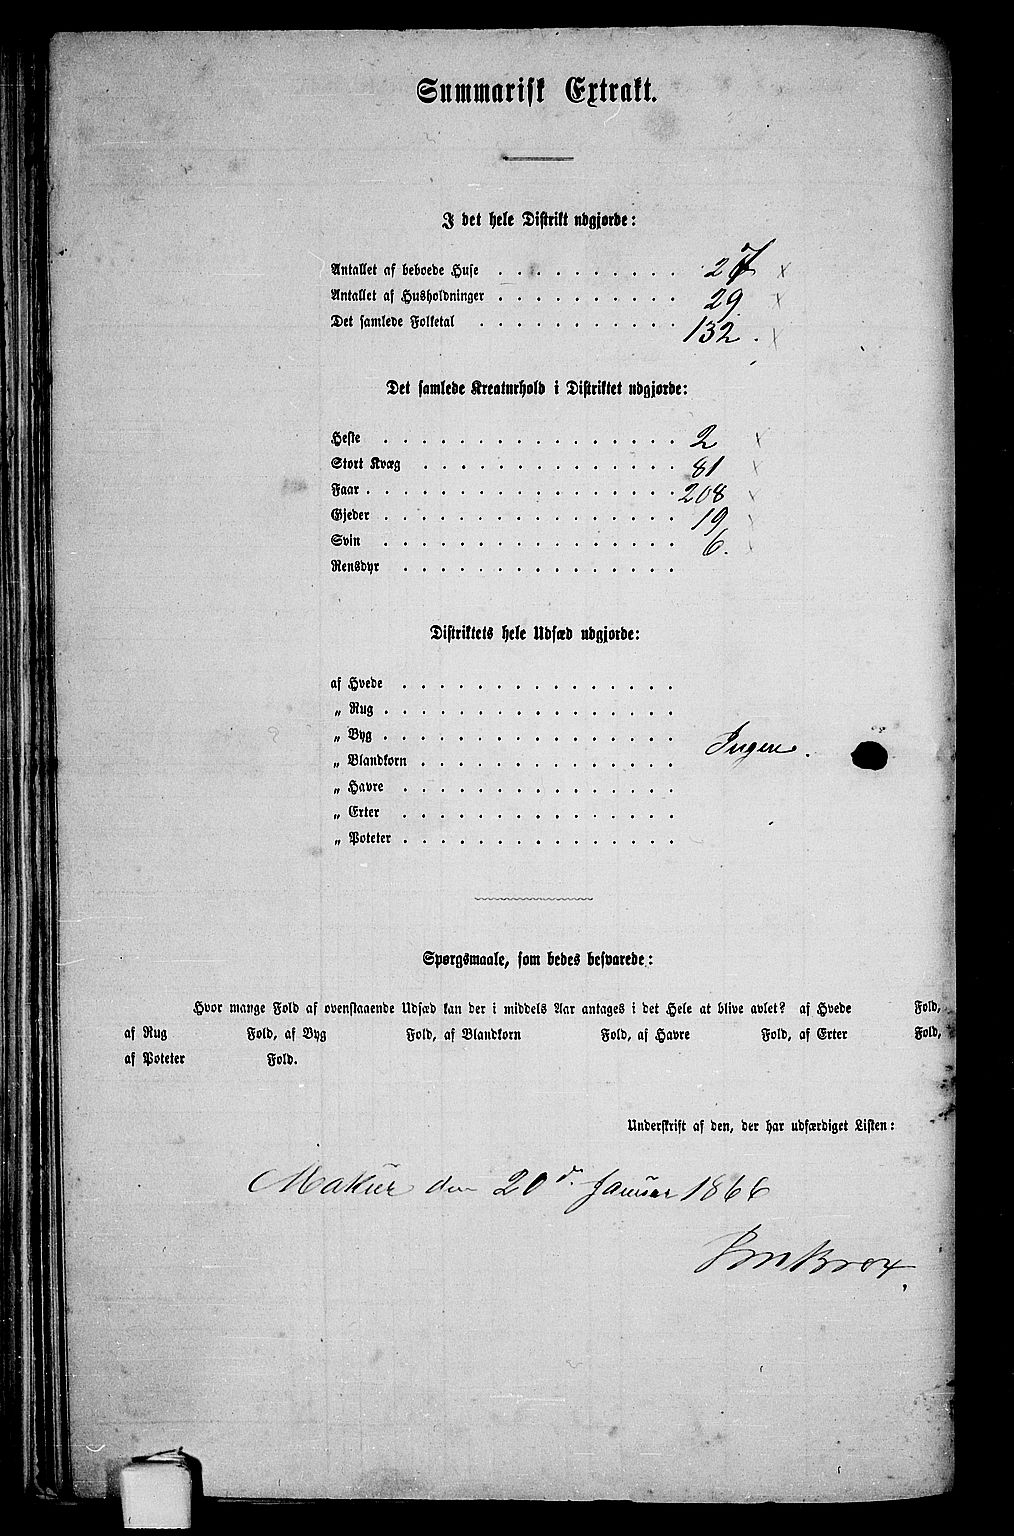 Summarisk Extrakt.
I det hele Distrikt udgjorde:
Antallet af beboede Huse . . . . . . . . . . 27 x
Antallet af Husholdninger . . . . . . . . . . 29 x
Det samlede Folketal . . . . . . . . . . . 132. x
Det samlede Kreaturhold i Distriktet udgjorde:
Heste . . . . . . . . . . . . . . . . 2 x
Stort Kvæg . . . . . . . . . . . . . . 81 x
Faar . . . . . . . . . . . . . . . . . 208 x
Gjeder . . . . . . . . . . . . . . . . 19 x
Svin . . . . . . . . . . . . . . . . 6. x
Rensdyr . . . . . . . . . . . . . . .
Distriktets hele Udsæd udgjorde:
af Hvede . . . . . . . . . . . . . . .
„ Rug . . . . . . . . . . . . . . . .
„ Byg . . . . . . . . . . . . . . . . Ingen.
„ Blandkorn . . . . . . . . . . . . . .
„ Havre . . . . . . . . . . . . . . .
„ Erter . . . . . . . . . . . . . . .
„ Poteter . . . . . . . . . . . . . . .
Spørgsmaale, som bedes besvarede:
Hvor mange Fold af ovenstaaende Udsæd kan der i middels Aar antages i det Hele at blive avlet? af Hvede Fold,
af Rug Fold, af Byg Fold, af Blandkorn Fold, af Havre Fold, af Erter Fold,
af Poteter Fold.
Underskrift af den, der har udfærdiget Listen:
den 20 d. Januar 1866